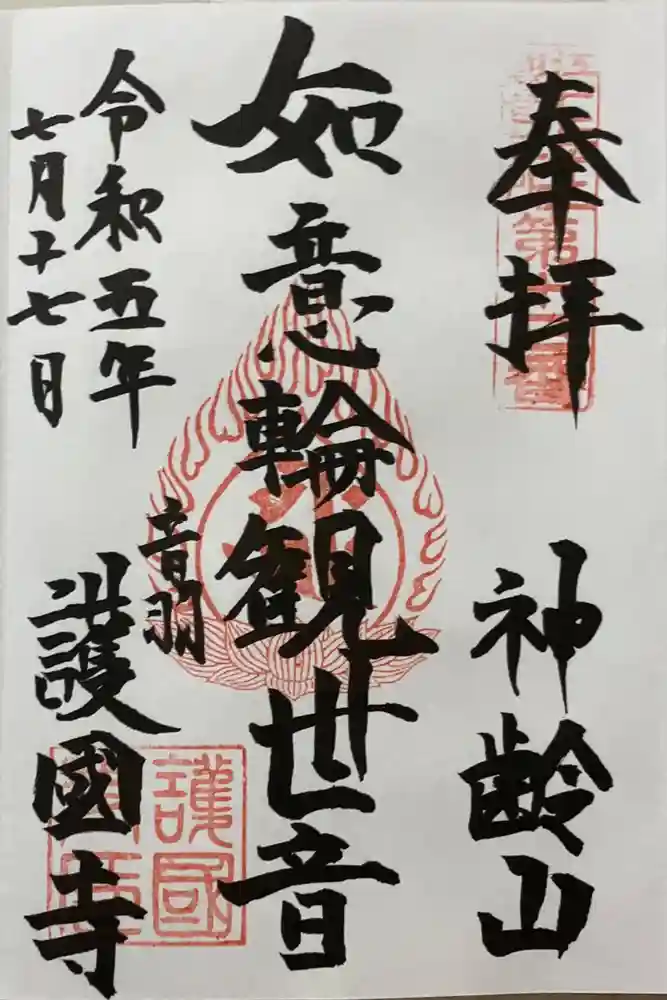 奉拝
神齢山
如意輪観世音
令和五年
七月十七日
音羽
護國寺
護國
第
番